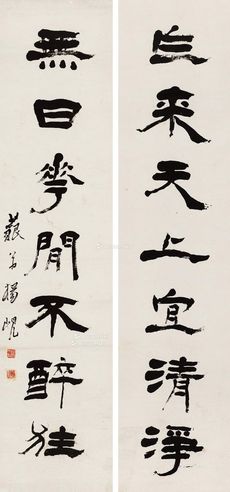 来天上宜清淨
無日花間不醉狂
藐翁楊峴